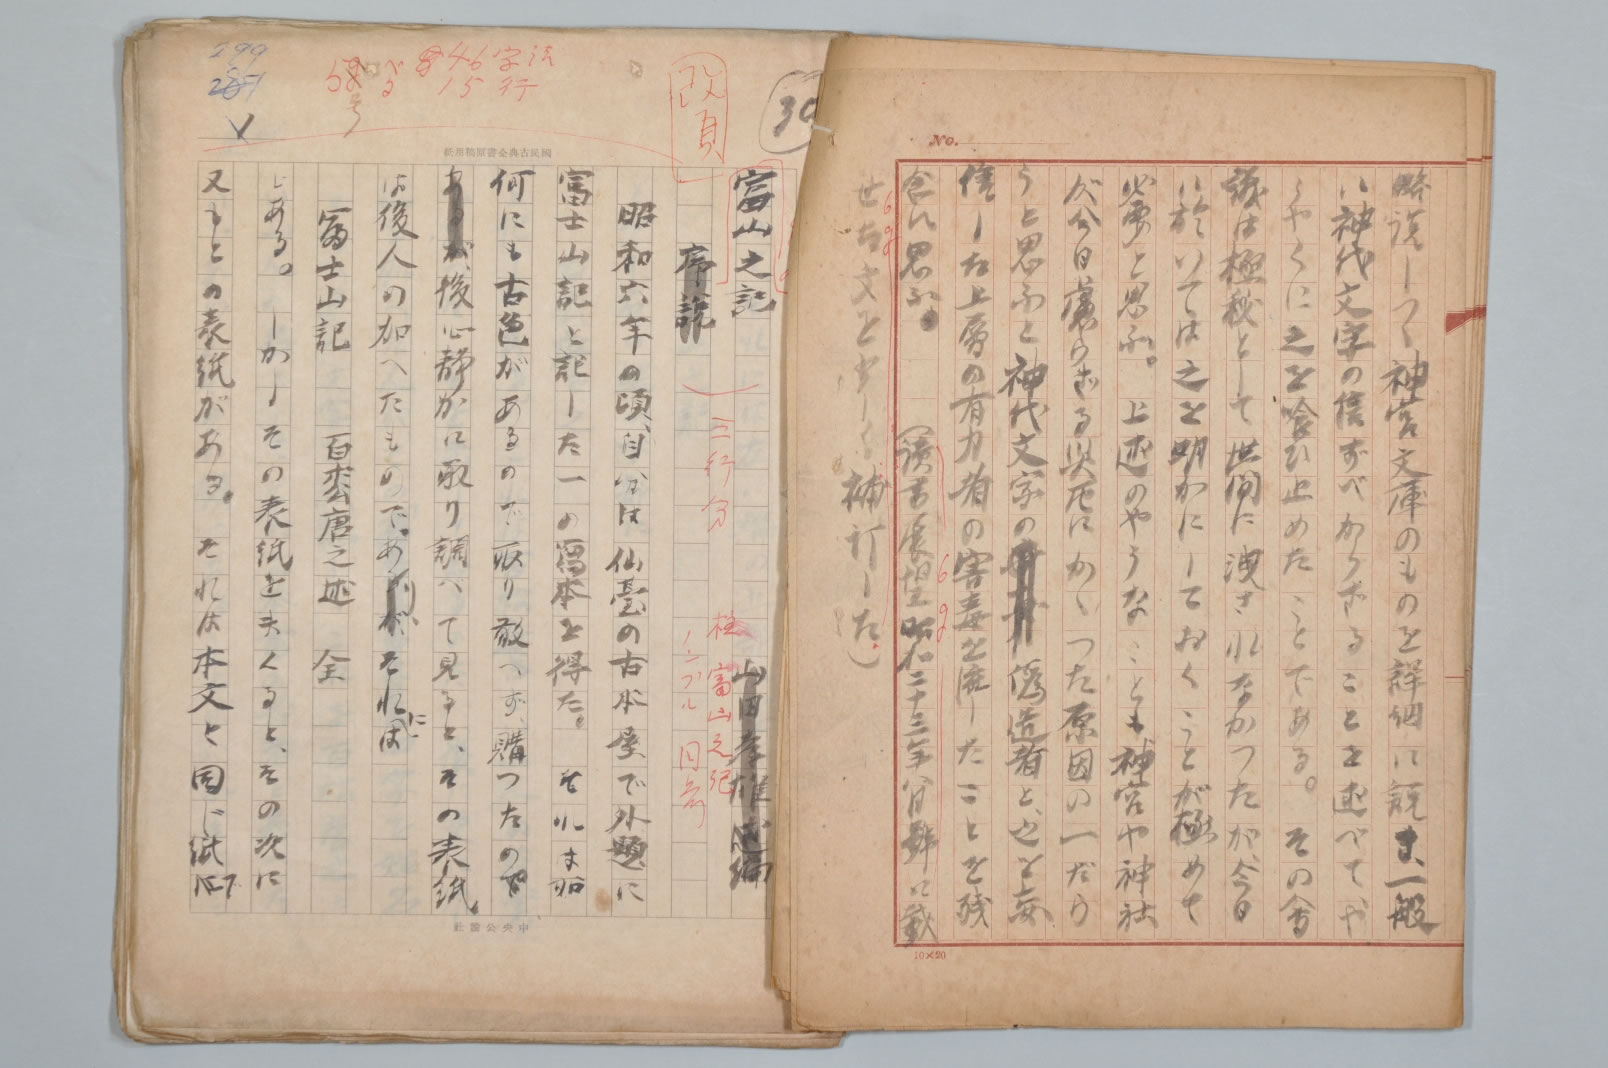 No.
略説しつゝ神宮文庫のものを詳細に説き一般
に神代文字の信ずべからざることを述べて、や
うやくに之を喰ひ止めたことである。その会
議は極秘として世間に洩されなかつたが、今日
に於いては之を明かにしておくことが極めて
必要と思ふ。上述のやうなことも神宮や神社
が今日慮らざる災厄にかゝつた原因の一だら
うと思ふと神代文字の偽造者と、之を妄
信した上層の有力者の害毒を流したことを残
念に思ふ。
(読書展望昭和二十三年八月号に載
せた文を少しく補訂した。)
10×20
299
5号
46字詰
15行
改頁
30
國民古典全書原稿用紙
富山之記
山田孝雄
序説
三行分
柱 富山之記
ノンブル 同前
昭和六年の頃、自分は仙臺の古本屋で外題に
富士山記と記した一の寫本を得た。それは如
何にも古色があるので取り敢へず、購つたので
あるが、後心静かに取り調べて見ると、その表紙
は後人の加へたもので、あ
が、それに
は
冨士山記 百 唐之述 全
とある。しかしその表紙を去くると、その次に
又もとの表紙がある。それは本文と同じ紙で
中央公論社